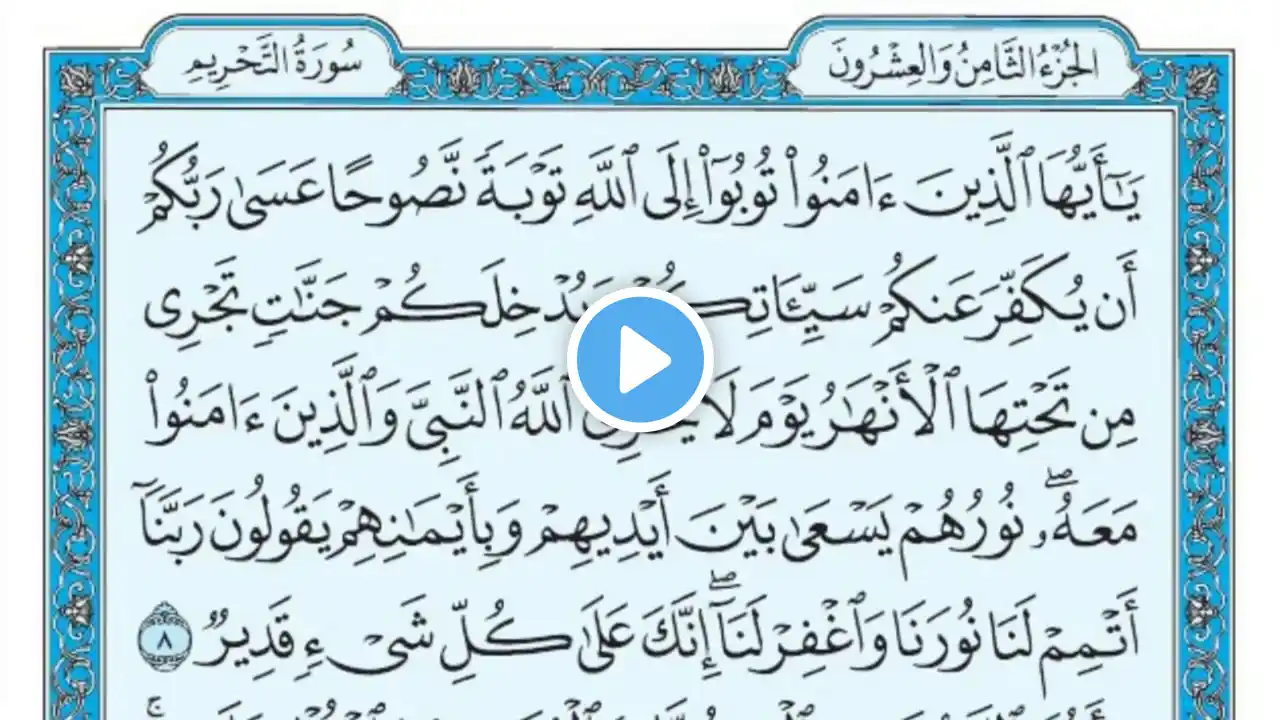 الجُزْءُ الثَّامِنُ وَالعِشْرُونَ
سُورَةُ التَّحْرِيمِ
يَـٰٓأَيُّهَا ٱلَّذِينَ ءَامَنُوا۟ تُوبُوٓا۟ إِلَى ٱللَّهِ تَوْبَةً نَّصُوحًا عَسَىٰ رَبُّكُمْ
أَن يُكَفِّرَ عَنكُمْ سَيِّـَٔاتِكُمْ وَيُدْخِلَكُمْ جَنَّـٰتٍ تَجْرِى
مِن تَحْتِهَا ٱلْأَنْهَـٰرُ يَوْمَ لَا ٱللَّهُ ٱلنَّبِىَّ وَٱلَّذِينَ ءَامَنُوا۟
مَعَهُۥۖ نُورُهُمْ يَسْعَىٰ بَيْنَ أَيْدِيهِمْ وَبِأَيْمَـٰنِهِمْ يَقُولُونَ رَبَّنَآ
أَتْمِمْ لَنَا نُورَنَا وَٱغْفِرْ لَنَآۖ إِنَّكَ عَلَىٰ كُلِّ شَىْءٍ قَدِيرٌ ٨